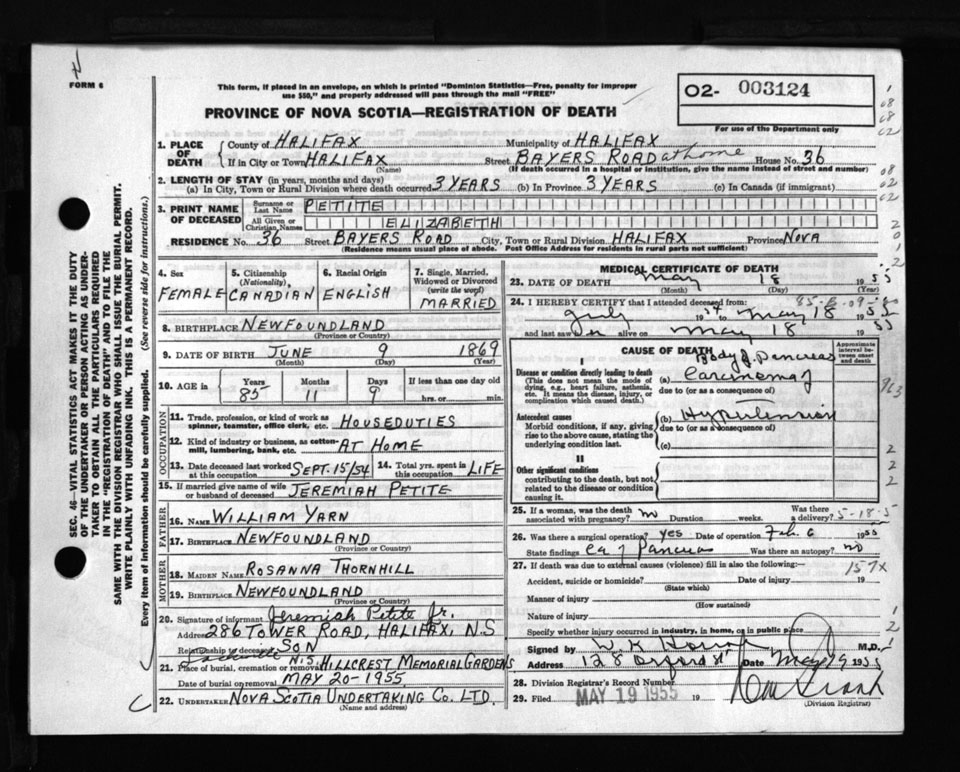 FORM 6
This form, if placed in an envelope, on which is printed "Dominion Statistics—Free, penalty for improper
use $50," and properly addressed will pass through the mail "FREE"
PROVINCE OF NOVA SCOTIA—REGISTRATION OF DEATH
02- 003124
For use of the Department only
SEC. 46—VITAL STATISTICS ACT MAKES IT THE DUTY
OF THE UNDERTAKER OR PERSON ACTING AS UNDER-
TAKER TO OBTAIN ALL THE PARTICULARS REQUIRED
IN THE "REGISTRATION OF DEATH" AND TO FILE THE
SAME WITH THE DIVISION REGISTRAR WHO SHALL ISSUE THE BURIAL PERMIT.
WRITE PLAINLY WITH UNFADING INK. THIS IS A PERMANENT RECORD.
Every item of information should be carefully supplied. (See reverse side for instructions.)
1. PLACE OF DEATH
County of HALIFAX Municipality of HALIFAX
If in City or Town HALIFAX (Name) Street BAYERS ROAD at home House No. 36
(If death occurred in a hospital or institution, give the name instead of street and number)
2. LENGTH OF STAY (in years, months and days)
(a) In City, Town or Rural Division where death occurred 3 YEARS (b) In Province 3 YEARS (c) In Canada (if immigrant)
3. PRINT NAME OF DECEASED
Surname or Last Name PETITE
All Given or Christian Names ELIZABETH
RESIDENCE No. 36 Street BAYERS ROAD City, Town or Rural Division HALIFAX Province NOVA
(Residence means usual place of abode. Post Office Address for residents in rural parts not sufficient)
4. Sex FEMALE
5. Citizenship (Nationality) CANADIAN
6. Racial Origin ENGLISH
7. Single, Married, Widowed or Divorced (write the word) MARRIED
8. BIRTHPLACE NEWFOUNDLAND
(Province or Country)
9. DATE OF BIRTH JUNE 9 1869
(Month) (Day) (Year)
10. AGE in Years 85 Months 11 Days 9 If less than one day old hrs. or min.
OCCUPATION
11. Trade, profession, or kind of work as
spinner, teamster, office clerk, etc. HOUSEDUTIES
12. Kind of industry or business, as cotton-
mill, lumbering, bank, etc. AT HOME
13. Date deceased last worked at this occupation SEPT. 15/54 14. Total yrs. spent in this occupation LIFE
15. If married give name of wife
or husband of deceased JEREMIAH PETITE
FATHER
16. NAME WILLIAM YARN
17. BIRTHPLACE NEWFOUNDLAND
(Province or Country)
MOTHER
18. MAIDEN NAME ROSANNA THORNHILL
19. BIRTHPLACE NEWFOUNDLAND
(Province or Country)
20. Signature of informant Jeremiah Petite Jr.
Address 286 TOWER ROAD, HALIFAX, N.S
Relationship to deceased SON
21. Place of burial, cremation or removal N.S. HILLCREST MEMORIAL GARDENS
Date of burial or removal MAY 20-1955
22. UNDERTAKER NOVA SCOTIA UNDERTAKING CO. LTD.
(Name and address)
MEDICAL CERTIFICATE OF DEATH
23. DATE OF DEATH May 18 1955
(Month) (Day) (Year)
24. I HEREBY CERTIFY that I attended deceased from:
July 1954 to May 18 1955
and last saw her alive on May 18 1955
CAUSE OF DEATH
Approximate interval between onset and death
I
Disease or condition directly leading to death
(This does not mean the mode of
dying, e.g., heart failure, asthenia,
etc. It means the disease, injury, or
complication which caused death.)
(a) Carcinoma of Body of Pancreas
due to (or as a consequence of)
Antecedent causes
Morbid conditions, if any, giving
rise to the above cause, stating the
underlying condition last.
(b) Hypertension
due to (or as a consequence of)
(c)
II
Other significant conditions
contributing to the death, but not
related to the disease or condition
causing it.
963
25. If a woman, was the death
associated with pregnancy? no Duration weeks. Was there a delivery?
5-18-5
26. Was there a surgical operation? yes Date of operation Feb. 6 1955
State findings Ca of Pancreas Was there an autopsy? no
27. If death was due to external causes (violence) fill in also the following:—
157x
Accident, suicide or homicide? Date of injury 19
(State which)
Manner of injury
(How sustained)
Nature of injury
Specify whether injury occurred in industry, in home, or in public place
Signed by M.D.
Address 128 Oxford St. Date May 19 1955
28. Division Registrar's Record Number
29. Filed MAY 19 1955 19
(Division Registrar)